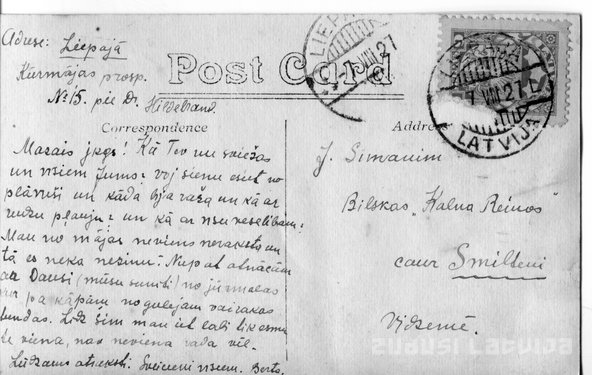 Adrese: Liepājā
Kurmājas prosp.
No 15. pie Dr. Hildebrand.
LIEPĀJA
7 VIII 27
LIEPĀJA
7 VIII 27
LATVIJA
Post Card
Correspondence
Address
Mazais Kā Tev un
un visiem Jums; vai sienu esat no
plāvuši un kāda bija raža un kā ar
rudzu pļauju: un kā ar veselibām:
Man no mājas neviens neraksta un
tā es neka nezinu. Nupat atnācām
ar Dausi (mūsu ) no jūrmalas
pa kāpām nogulejam vairakas
stundas. Līdz šim man iet labi tik esmu
viena, nav neviena rada vēl.
Lūdzams atraksti. Sveicieni visiem. Berta.
J. Simanim
Bilskas "Kalna Reinos"
caur Smilteni
Vidzemē.
zudusi Latvija